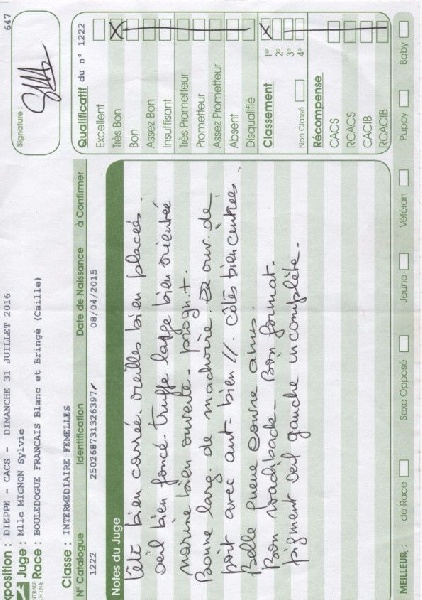 xposition : DIEPPE - CACS - DIMANCHE 31 JUILLET 2016
Juge : Mlle MIGNON Sylvie
Race : BOULEDOGUE FRANCAIS Blanc et Bringé (Caille)
647
Signature
Classe : INTERMEDIAIRE FEMELLES
N° Catalogue Identification Date de Naissance à Confirmer
1222 250268731326397/ 08/04/2015
Notes du Juge
Tête bien carrée oreilles bien placées.
oeil bien foncé. truffe large bien orientée
narine bien ouverte. progn.+
Bonne larg. de machoire. ouv. de
poit avec ant bien //. côtes bien cintrées
Belle queue couvre anus.
Bon roachback. Bon format.
pigment oeil gauche incomplète.
Qualificatif du n° 1222
Excellent
Très Bon
Bon
Assez Bon
Insuffisant
Très Prometteur
Prometteur
Assez Prometteur
Absent
Disqualifié
Classement 1° 2° 3° 4°
Non Classé
Récompense
CACS
RCACS
CACIB
RCACIB
MEILLEUR : de Race Sexe Opposé Jeune Vétéran Puppy Baby